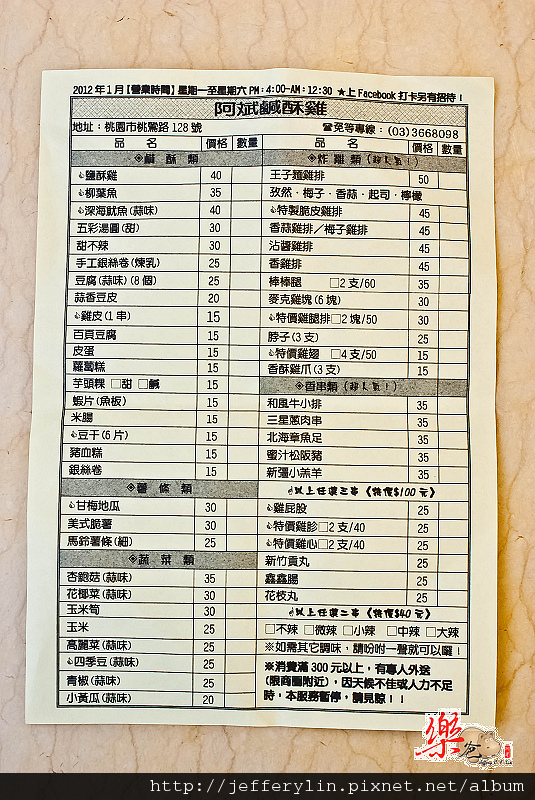 2012年1月【營業時間】星期一至星期六 PM:4:00-AM:12:30 ★上Facebook打卡另有招待!
阿斌鹹酥雞
地址：桃園市桃鶯路128號 ☎免等專線：(03)3668098
品名 價格 數量
◈鹹酥類
鹽酥雞 40
柳葉魚 35
深海魷魚(蒜味) 40
五彩湯圓(甜) 30
甜不辣 30
手工銀絲卷(煉乳) 25
豆腐(蒜味)(8個) 25
蒜香豆皮 20
雞皮(1串) 15
百頁豆腐 15
皮蛋 15
蘿蔔糕 15
芋頭粿 □甜 □鹹 15
蝦片(魚板) 15
米腸 15
豆干(6片) 15
豬血糕 15
銀絲卷 15
◈薯條類
甘梅地瓜 30
美式脆薯 30
馬鈴薯條(細) 25
◈蔬菜類
杏鮑菇(蒜味) 35
花椰菜(蒜味) 30
玉米筍 30
玉米 25
高麗菜(蒜味) 25
四季豆(蒜味) 25
青椒(蒜味) 25
小黃瓜(蒜味) 20
品名 價格 數量
◈炸雞類(超人氣!)
王子麵雞排 50
孜然・梅子・香蒜・起司・檸檬
特製脆皮雞排 45
香蒜雞排/梅子雞排 45
沾醬雞排 45
香雞排 45
棒棒腿 □2支/60 35
麥克雞塊(6塊) 30
特價雞腿排□2塊/50 30
脖子(3支) 25
特價雞翅 □4支/50 15
香酥雞爪(3支) 15
◈香串類(超人氣!)
和風牛小排 35
三星蔥肉串 35
北海章魚足 35
蜜汁松阪豬 35
新彊小羔羊 35
以上任選三串《特價$100元》
雞屁股 25
特價雞胗□2支/40 25
特價雞心□2支/40 25
新竹貢丸 25
鑫鑫腸 25
花枝丸 25
以上任選二串《特價$40元》
□不辣 □微辣 □小辣 □中辣 □大辣
※如需其它調味，請吩咐一聲就可以囉！
※消費滿300元以上，有專人外送
(限商圈附近)，因天候不佳或人力不足
時，本服務暫停，請見諒！！
樂爸
http://jefferylin.pixnet.net/album